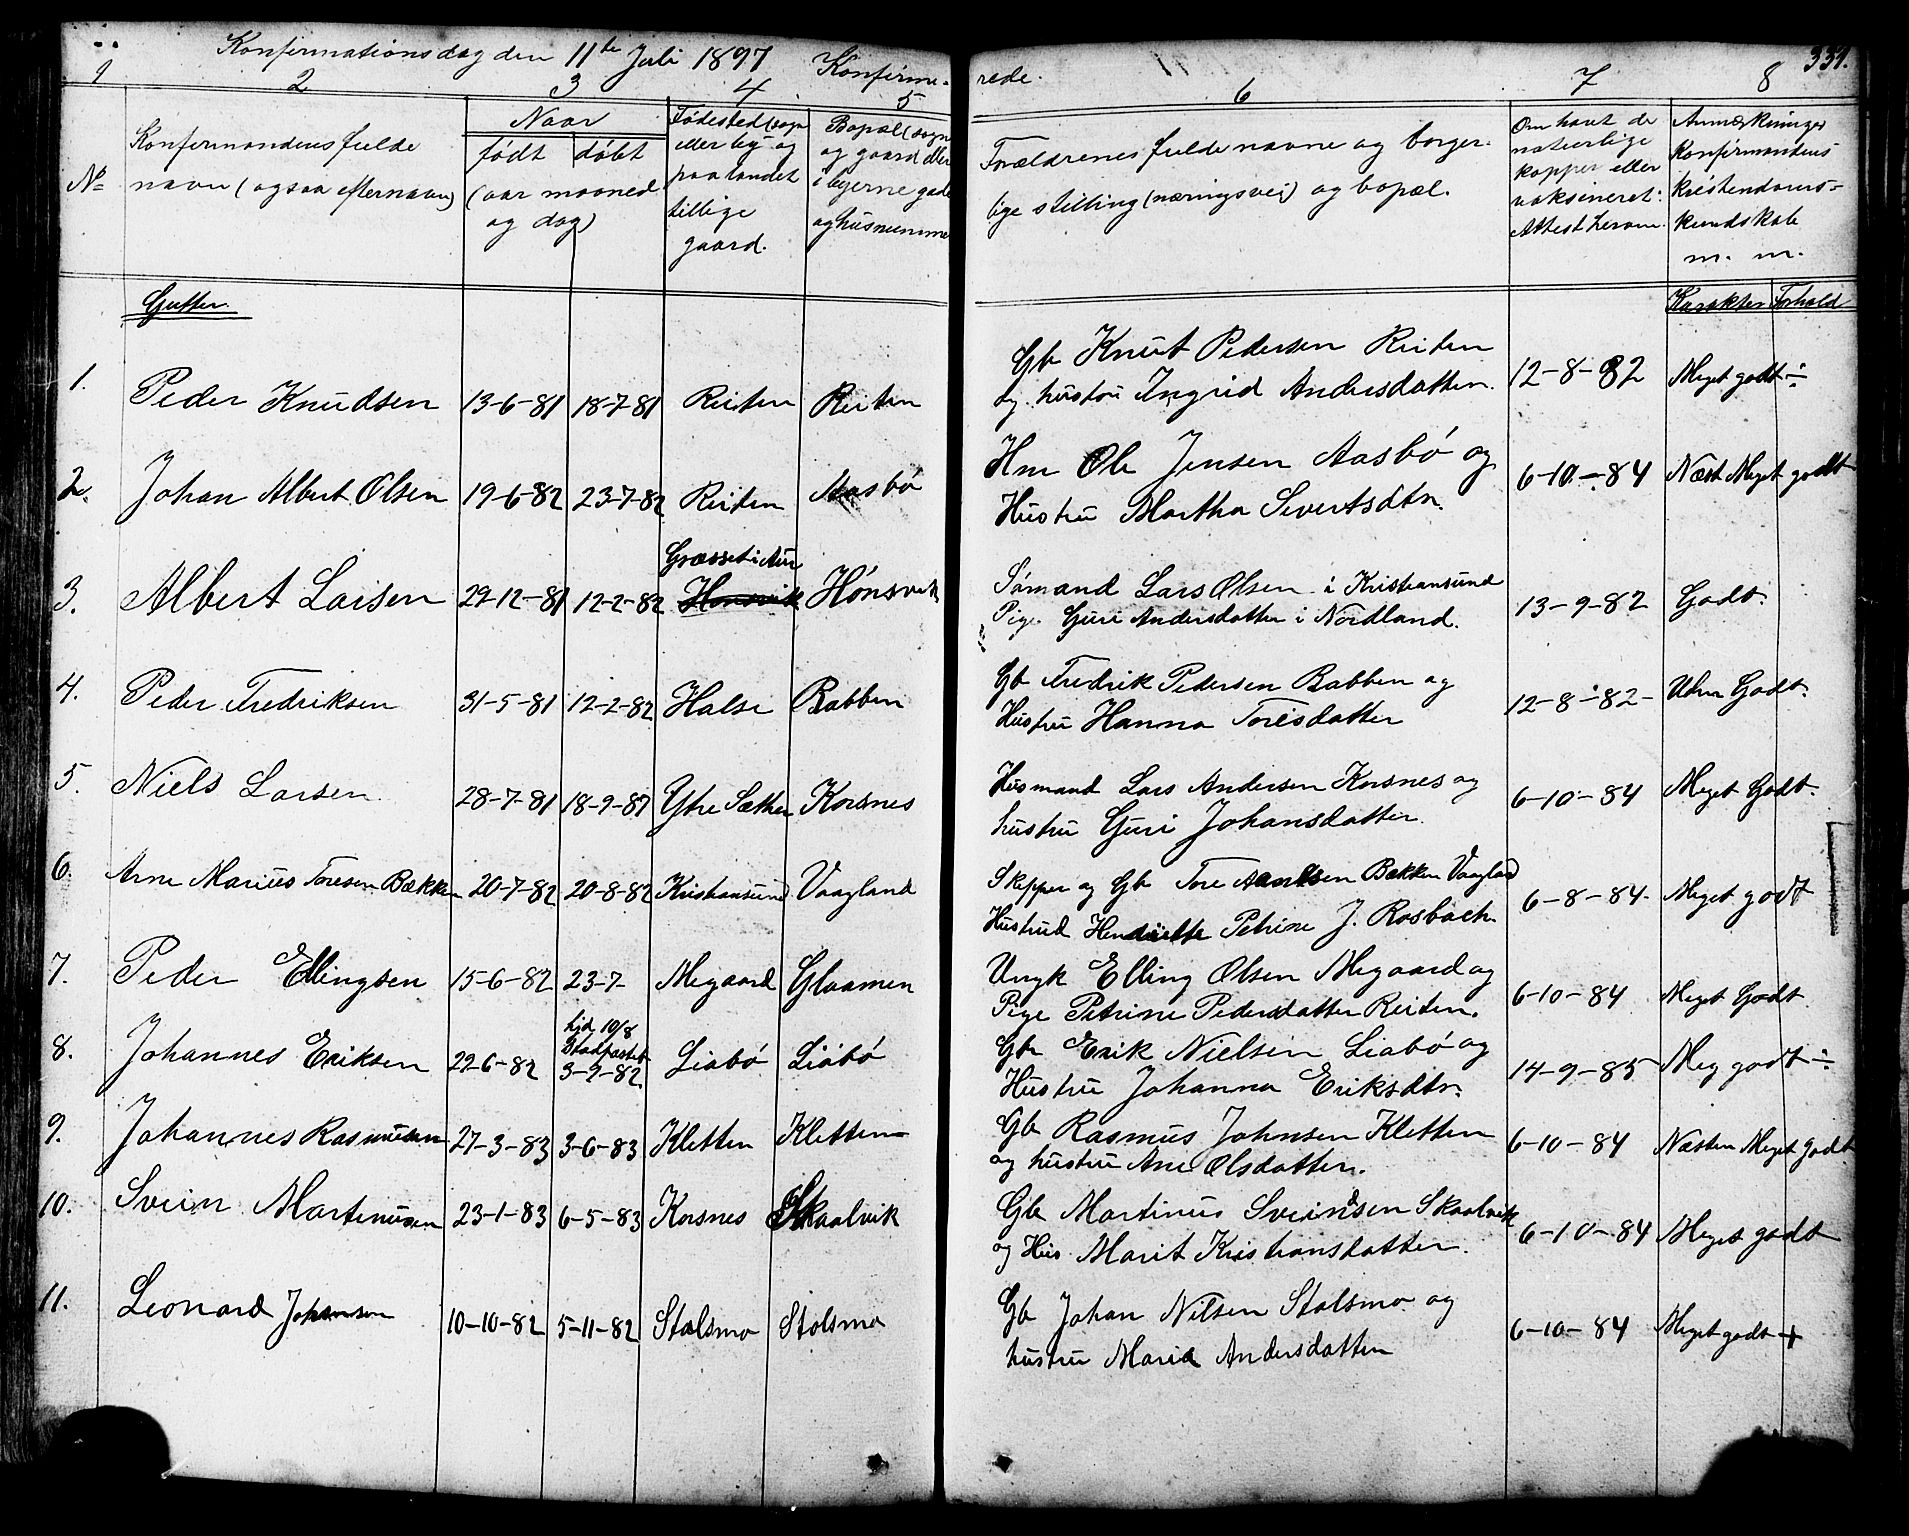 Konfirmationsdag den 11te Juli 1897 Konfirme-
rede. 331.
1 2 3 4 5 6 7 8
No
Konfirmandens fulde
navn (ogsaa efternavn)
Naar
født døbt
(aar maaned
og dag)
Fødested (sogn
eller by og
paa landet
tillige
gaard.
Bopæl (sogn
og gaard eller
i byerne gade
og husnumme
Forældrenes fulde navne og borger-
lige stilling (næringsvei) og bopæl.
Om havt de
naturlige
kopper eller
vaksineret:
Attest herom.
Anmærkninger
Konfirmandens
kristendoms-
kundskab
m. m.
Karakter Forhold
Gutter
Gb Knut Pedersen Reiten
1. Peder Knudsen 13-6-81 18-7-81 Reiten Reiten og hustru Ingrid Andersdatter. 12-8-82 Meget godt ÷
Hm Ole Jensen Aasbø og
2. Johan Albert Olsen 19-6-82 23-7-82 Reiten Aasbø Hustru Martha Sivertsdtr. 6-10-84 Næst Meget godt
Græsset i Aure
3. Albert Larsen 29-12-81 12-2-82 Hønsvik Hønsvik Sømand Lars Olsen i Kristiansund 13-9-82 Godt.
Pige Guri Andersdatter i Nordland.
4. Peder Fredriksen 31-5-81 12-2-82 Halse Babben Gb Fredrik Pedersen Babben og 12-8-82- Uden Godt.
Hustru Hanna Toresdatter
5. Niels Larsen 28-7-81 18-9-81 Ytre Sæther Korsnes Husmand Lars Andersen Korsnes og 6-10-84 Meget Godt.
hustru Guri Johansdatter.
6. Arne Marius Toresen Bækken 20-7-82 20-8-82 Kristiansund Vaagland Skipper og Gb Tore Bækken Vaagland 6-8-84. Meget godt
Hustrud Henriette Petrine J. Rosbach
7. Peder Ellingsen 15-6-82 23-7- Megaard Glaamen Ungk Elling Olsen Megaard og 6-10-84 Meget Godt
Pige Petrine Pedersdatter Reiten.
hjd 10/8
Stadfæstet
8. Johannes Eriksen 29-6-82 3-9-82 Liabø Liabø Gb Erik Nielsen Liabø og 14-9-85 Meg godt ÷
Hustru Johanna Eriksdtr.
9. Johannes Rasmussen 27-3-83 3-6-83 Kletten Kletten Gb Rasmus Johnsen Kletten 6-10-84 Næsten Meget Godt
og hustru Ane Olsdatter.
10. Svein Martinussen 23-1-83 6-5-83 Korsnes Skaalvik Gb Martinus Sveindsen Skaalvik 6-10-84 Meget godt
og Hus Marit Kristiansdatter.
11. Leonard Johansen 10-10-82 5-11-82 Stolsmo Stolsmo Gb Johan Nilsen Stolsmo og 6-10-84 Meget godt +
hustru Maria Andersdatter